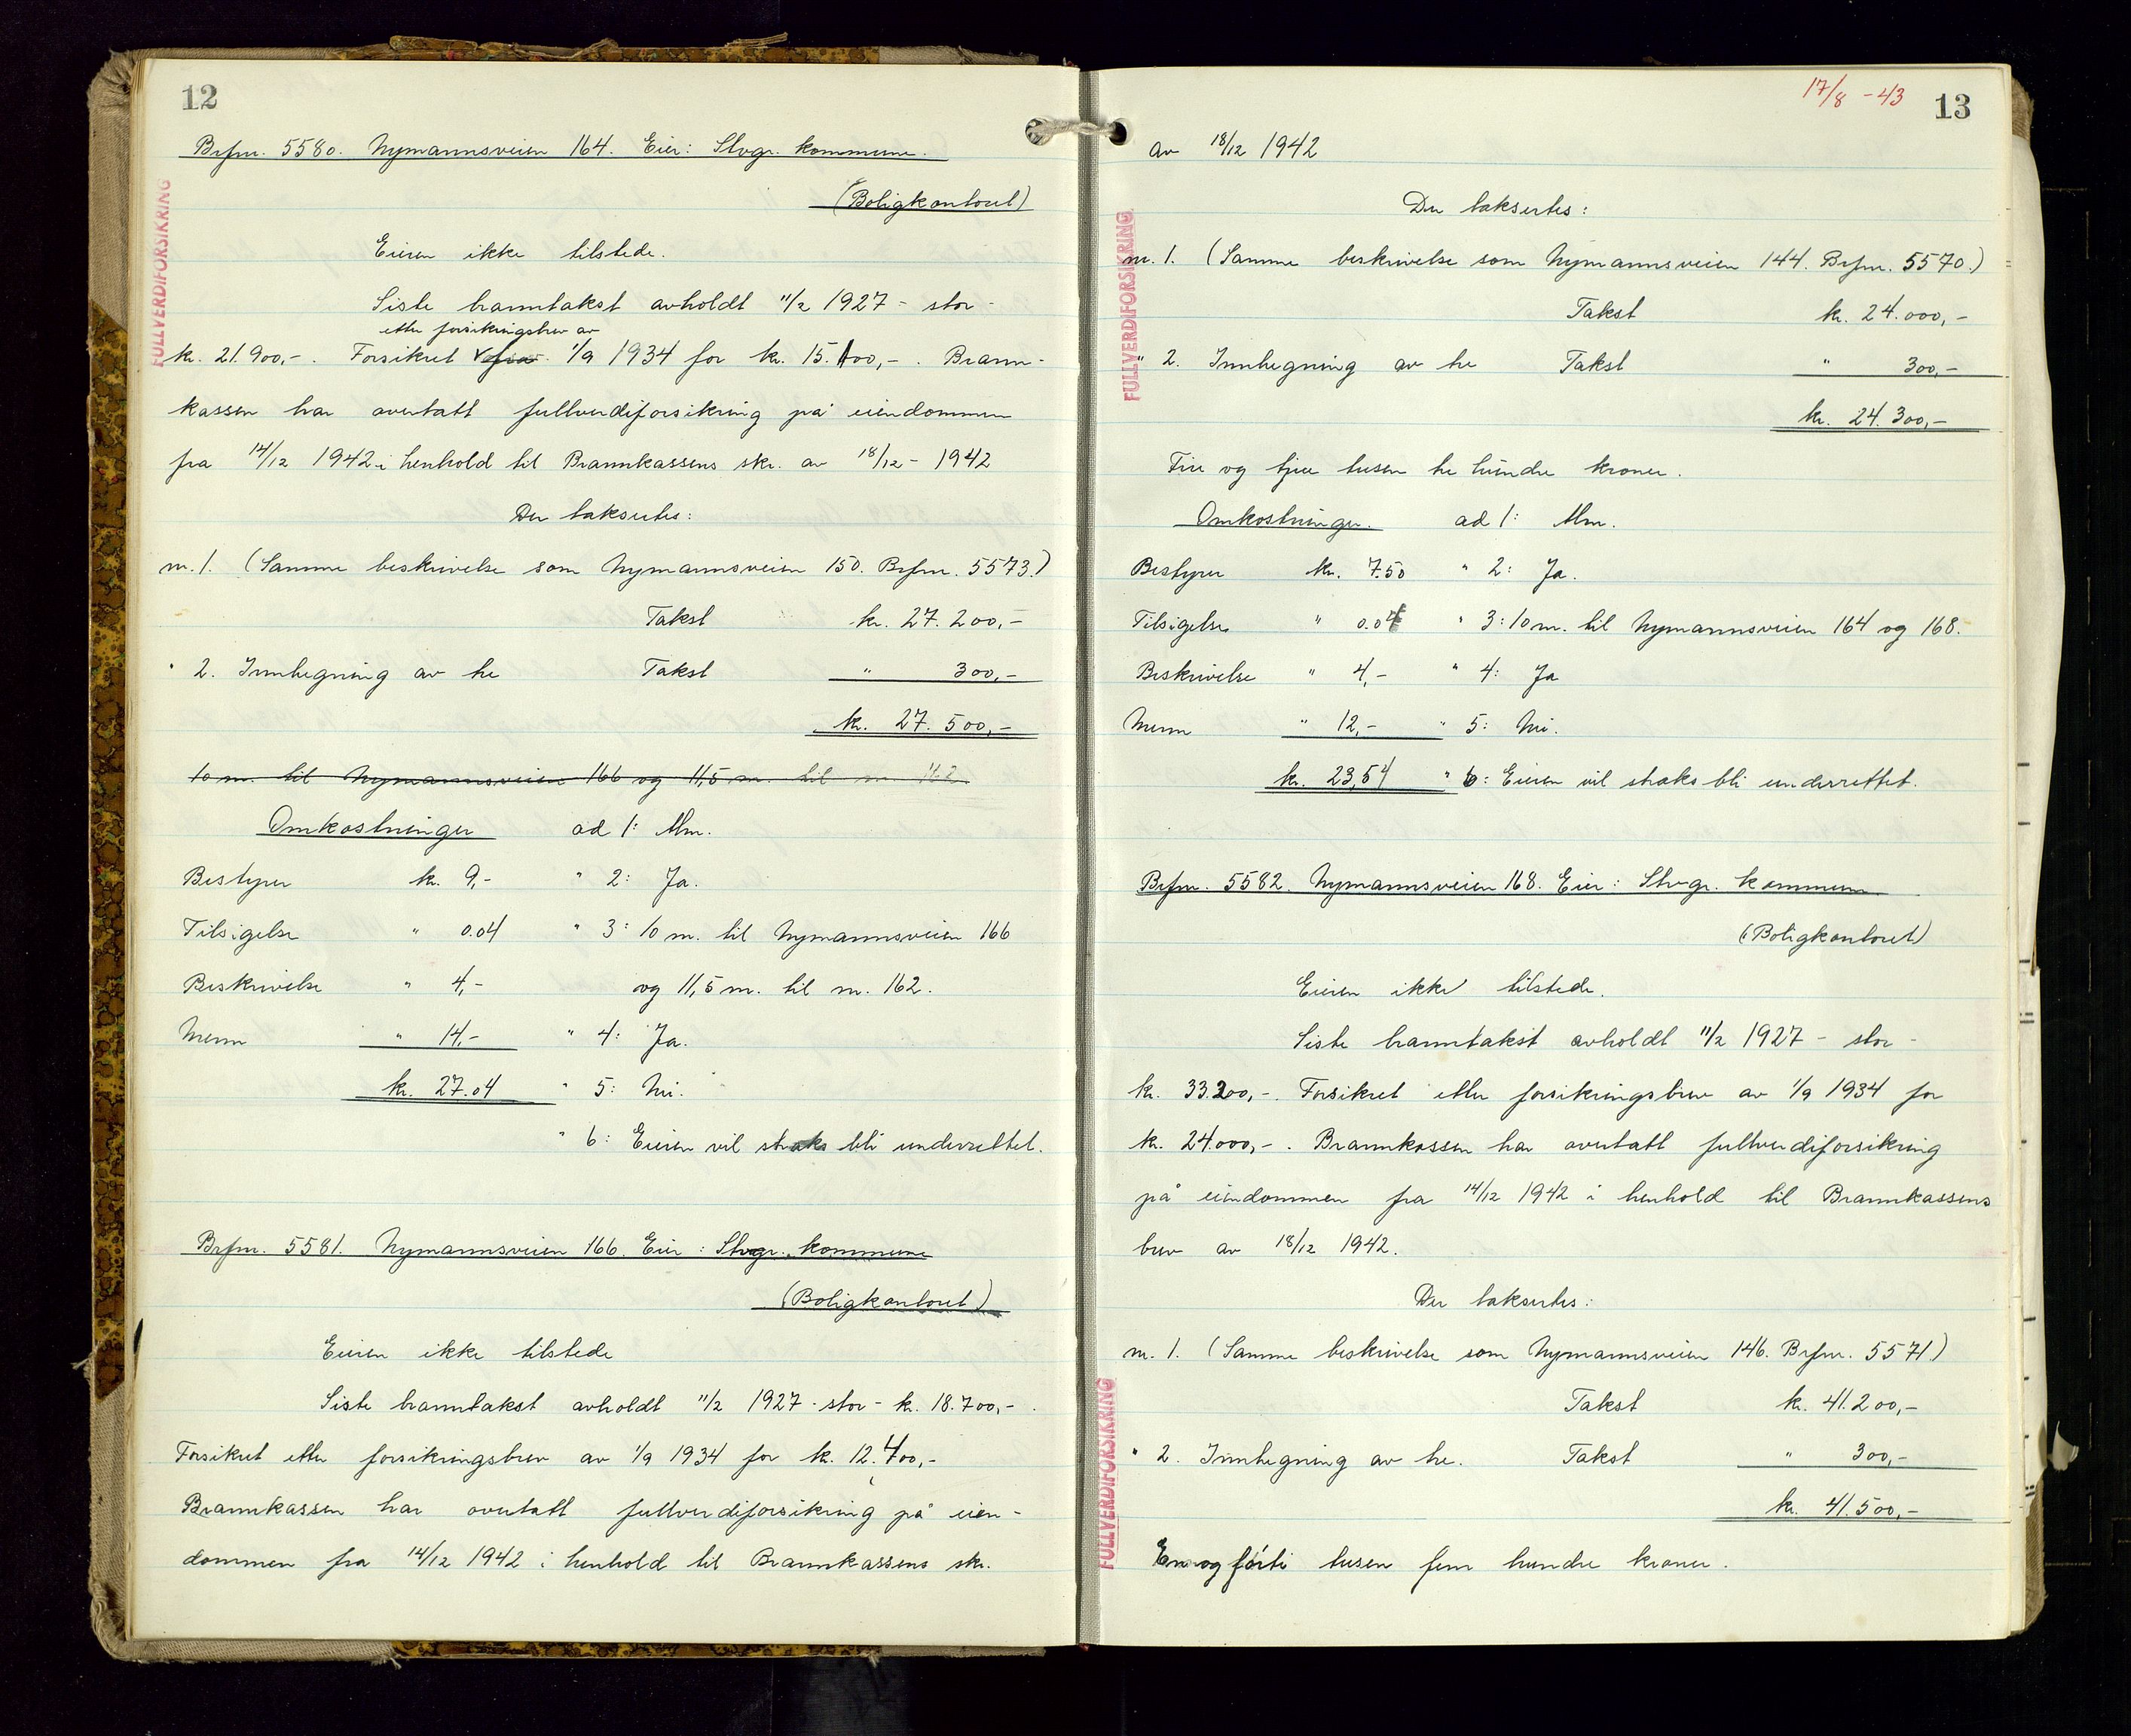 12
Brfnr. 5580. Nymannsveien 164. Eier: Stvgr. kommune.
(Boligkontoret)
FULLVERDIFORSIKRING
Eieren ikke tilstede.
Siste branntakst avholdt 11/2 1927 - stor -
etter forsikringsbrev av
kr. 21.900,-. Forsikret fra 1/9 1934 for kr. 15.100,-. Brann-
kassen har overtatt fullverdiforsikring på eiendommen
fra 14/12 1942 i henhold til Brannkassens skr. av 18/12 - 1942
Der takseertes:
nr. 1. (Samme beskrivelse som Nymannsveien 150. Brfnr. 5573.)
Takst kr. 27.200,-
" 2. Innhegning av tre Takst " 300,-
kr. 27.500,-
10 m. til Nymannsveien 166 og 11,5 m. til nr. 162.
Omkostninger ad 1: Alm.
Bestyrer kr. 9,- " 2: Ja.
Tilsigelse " 0.04 " 3: 10 m. til Nymannsveien 166
Beskrivelse " 4,- og 11,5 m. til nr. 162.
Menn " 14,- " 4: Ja.
kr. 27.04 " 5: Nei.
" 6: Eieren vil straks bli underrettet.
Brfnr. 5581. Nymannsveien 166. Eier: Stvgr. kommune
(Boligkontoret)
Eieren ikke tilstede
Siste branntakst avholdt 11/2 1927 - stor - kr. 18.700,-.
Forsikret etter forsikringsbrev av 1/9 1934 for kr. 12.400,-
Brannkassen har overtatt fullverdiforsikring på eien-
dommen fra 14/12 1942 i henhold til Brannkassens skr.
17/8 - 43
13
av 18/12 1942
Der taksertes:
FULLVERDIFORSIKRING
nr. 1. (Samme beskrivelse som Nymannsveien 144. Brfnr. 5570.)
Takst kr. 24.000,-
" 2. Innhegning av tre Takst " 300,-
kr. 24.300,-
Fire og tjue tusen tre hundre kroner.
Omkostninger. ad 1: Alm.
Bestyrer kr. 7.50 " 2: Ja.
Tilsigelse " 0.04 " 3: 10 m. til Nymannsveien 164 og 168.
Beskrivelse " 4,- " 4: Ja
Menn " 12,- " 5: Nei.
kr. 23,54 " 6: Eieren vil straks bli underrettet.
Brfnr. 5582. Nymannsveien 168. Eier: Stvgr. kommune
(Boligkontoret)
Eieren ikke tilstede.
Siste branntakst avholdt 11/2 1927 - stor -
kr. 33.200,-. Forsikret etter forsikringsbrev av 1/9 1934 for
kr. 24.000,-. Brannkassen har overtatt fullverdiforsikring
på eiendommen fra 14/12 1942 i henhold til Brannkassens
brev av 18/12 1942.
Der taksertes:
nr. 1. (Samme beskrivelse som Nymannsveien 146. Brfnr. 5571.)
Takst kr. 41.200,-
FULLVERDIFORSIKRING
" 2. Innhegning av tre. Takst " 300,-
kr. 41.500,-
En og førti tusen fem hundre kroner.